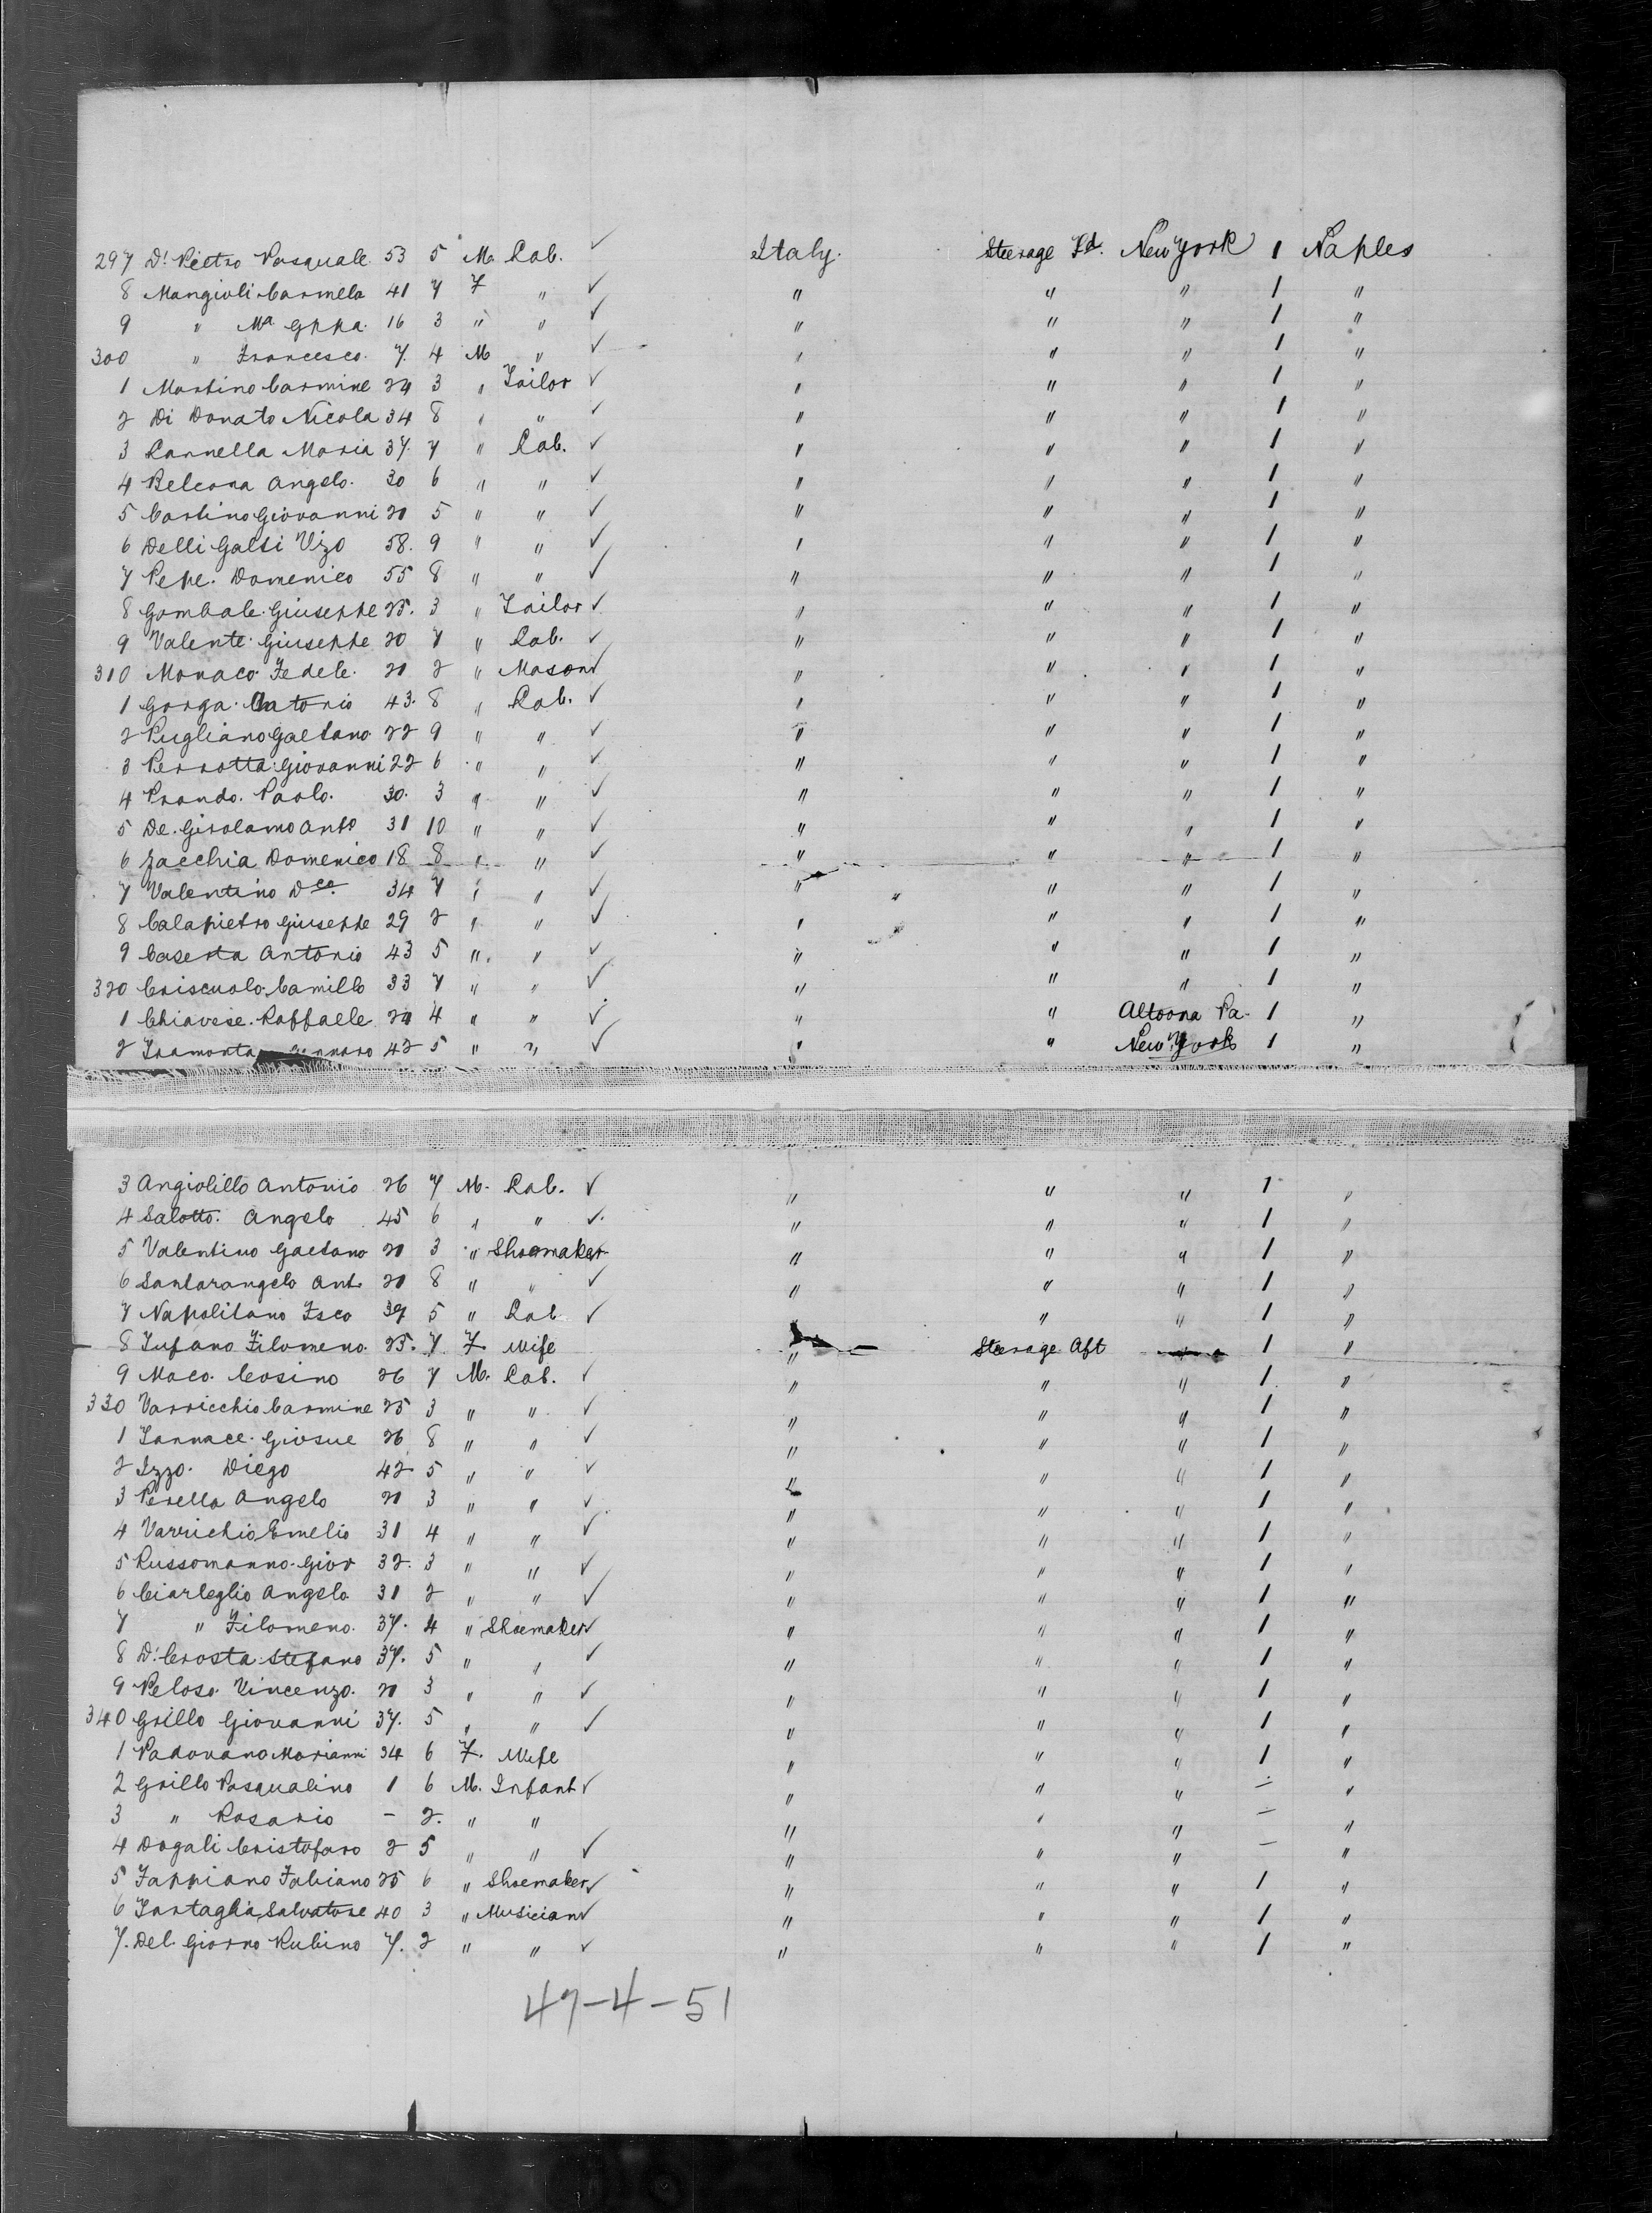 297 Di Pietro Pasquale 53 5 M. Lab. ✓ Italy. Steerage Fd. New York 1 Naples
8 Mangioli Carmela 41 7 F " ✓ " " " 1 "
9 " Ma Gppa. 16 3 " " ✓ " " " 1 "
300 " Francesco. 7. 4 M " ✓ " " " 1 "
1 Martino Carmine 24 3 " Tailor ✓ " " " 1 "
2 Di Donato Nicola 34 8 " " ✓ " " " 1 "
3 Cannella Maria 37. 7 " Lab. ✓ " " " 1 "
4 Angelo. 30 6 " " ✓ " " " 1 "
5 Giovanni 5 " " ✓ " " " 1 "
6 Delli Gatti Vizo 58. 9 " " ✓ " " " 1 "
7 Pepe. Domenico 55 8 " " ✓ " " " 1 "
8 Gombale. Giuseppe 25. 3 " Tailor ✓ " " " 1 "
9 Valente. Giuseppe 20 7 " Lab. ✓ " " " 1 "
310 Monaco. Fedele. 2 " Mason ✓ " " " 1 "
1 Gorga. Antonio 43. 8 " Lab. ✓ " " " 1 "
2 Pugliano Gaetano 22 9 " " ✓ " " " 1 "
3 Perrotta. Giovanni 22 6 " " ✓ " " " 1 "
4 Prando. Paolo. 30. 3 " " ✓ " " " 1 "
5 De. Girolamo Anto 31 10 " " ✓ " " " 1 "
6 Zacchia Domenico 18 8 " " ✓ " " " 1 "
7 Valentino Dco. 34 7 " " ✓ " " " 1 "
8 Calapietro Giuseppe 29 2 " " ✓ " " " 1 "
9 Caserta Antonio 43 5 " " ✓ " " " 1 "
320 Criscuolo. Camillo 33 7 " " ✓ " " " 1 "
1 Chiavese. Raffaelle 4 " " ✓ " " Altoona Pa. 1 "
2 Gennaro 42 5 " " ✓ " " New York 1 "
3 Angiolillo Antonio 26 7 M. Lab. ✓ " " " 1 "
4 Salotto. Angelo 45 6 " " ✓ " " " 1 "
5 Valentino Gaetano 3 " Shoemaker " " " 1 "
6 Santarangelo Ant. 8 " " ✓ " " " 1 "
7 Napolitano Fsco 39 5 " Lab ✓ " " " 1 "
8 Tufano Filomena. 25. 7. F. Wife " Steerage Aft " 1 "
9 Maco. Cosino 26 7 M. Lab. ✓ " " " 1 "
330 Varricchio Carmine 25 3 " " ✓ " " " 1 "
1 Iannace. Giosue 26 8 " " ✓ " " " 1 "
2 Izzo. Diego 42. 5 " " ✓ " " " 1 "
3 Perella Angelo 3 " " ✓ " " " 1 "
4 Varrichio Emelio 31 4 " " ✓ " " " 1 "
5 Russomanno. Giov 32. 3 " " ✓ " " " 1 "
6 Ciarleglio Angelo 31 2 " " ✓ " " " 1 "
7 " Filomeno. 37. 4 " Shoemaker ✓ " " " 1 "
8 Di Crosta. Stefano 37. 5 " " ✓ " " " 1 "
9 Peloso. Vincenzo. 3 " " ✓ " " " 1 "
340 Grillo Giovanni 37. 5 " " ✓ " " " 1 "
1 Padovano Marianni 34 6 F. Wife " " " 1 "
2 Grillo Pasqualino 1 6 M. Infant ✓ " " " - "
3 " Rosario - 2. " " " " " - "
4 Dogali Cristofaro 2 5 " " ✓ " " " - "
5 Fappiano Fabiano 25 6 " Shoemaker ✓ " " " 1 "
6 Tartaglia, Salvatore 40 3 " Musician ✓ " " " 1 "
7. Del. Giorno Rubino 7. 2 " " ✓ " " " 1 "
47-4-51